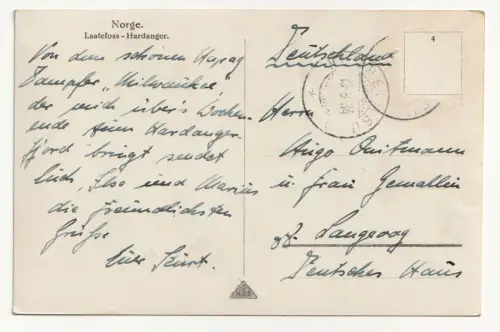 Norge.
Laatefoss - Hardanger.
Von dem schönen Hapag
Dampfer „Milwaukee",
der mich über's Wochen-
ende zum Hardanger-
fjord bringt sendet
Euch, Ilse und Marius
die freundlichsten
Grüße
Euer Kurt.
Deutschland
4
Herrn
Hugo
u. Frau Gemahlin
Langeoog
Deutsches Haus